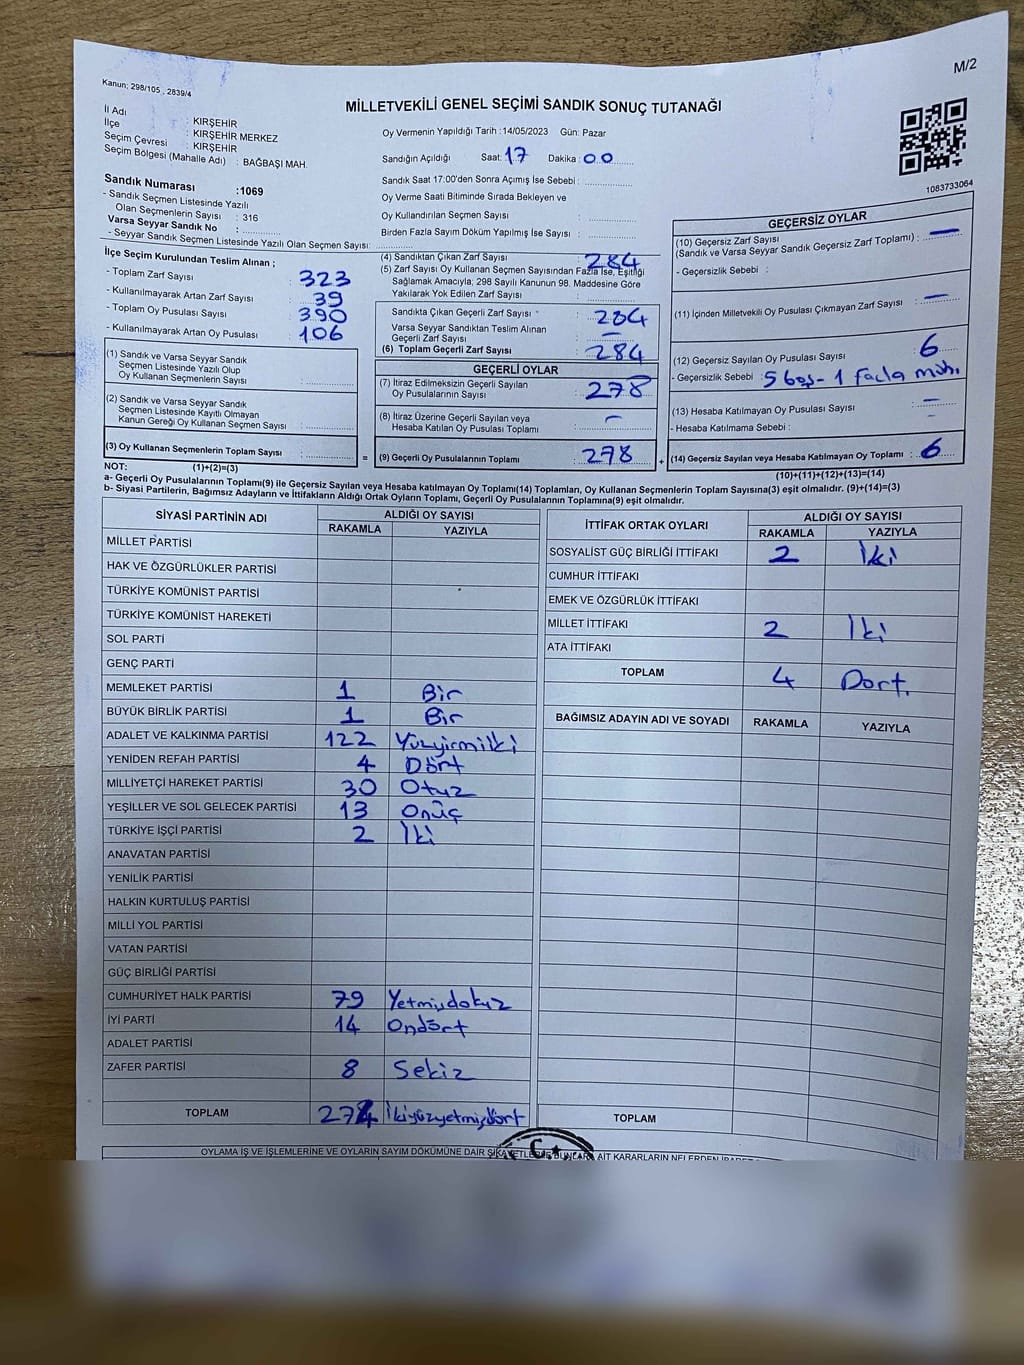 Kanun; 298/105 , 2839/4
M/2
MİLLETVEKİLİ GENEL SEÇİMİ SANDIK SONUÇ TUTANAĞI
İl Adı : KIRŞEHİR
İlçe : KIRŞEHİR MERKEZ
Seçim Çevresi : KIRŞEHİR
Seçim Bölgesi (Mahalle Adı) : BAĞBAŞI MAH.
Sandık Numarası :1069
- Sandık Seçmen Listesinde Yazılı
Olan Seçmenlerin Sayısı : 316
Varsa Seyyar Sandık No :
- Seyyar Sandık Seçmen Listesinde Yazılı Olan Seçmen Sayısı: ................
Oy Vermenin Yapıldığı Tarih :14/05/2023 Gün: Pazar
Sandığın Açıldığı Saat: 17 Dakika : 00
Sandık Saat 17:00'den Sonra Açımış İse Sebebi : ................
Oy Verme Saati Bitiminde Sırada Bekleyen ve
Oy Kullandırılan Seçmen Sayısı : ................
Birden Fazla Sayım Döküm Yapılmış İse Sayısı : ................
1083733064
İlçe Seçim Kurulundan Teslim Alınan ;
- Toplam Zarf Sayısı : 323
- Kullanılmayarak Artan Zarf Sayısı : 39
- Toplam Oy Pusulası Sayısı : 390
- Kullanılmayarak Artan Oy Pusulası : 106
(1) Sandık ve Varsa Seyyar Sandık
Seçmen Listesinde Yazılı Olup
Oy Kullanan Seçmenlerin Sayısı : ................
(2) Sandık ve Varsa Seyyar Sandık
Seçmen Listesinde Kayıtlı Olmayan
Kanun Gereği Oy Kullanan Seçmen Sayısı : ................
(3) Oy Kullanan Seçmenlerin Toplam Sayısı : ................
(4) Sandıktan Çıkan Zarf Sayısı : 284
(5) Zarf Sayısı Oy Kullanan Seçmen Sayısından Fazla İse, Eşitliği
Sağlamak Amacıyla; 298 Sayılı Kanunun 98. Maddesine Göre
Yakılarak Yok Edilen Zarf Sayısı : ................
Sandıkta Çıkan Geçerli Zarf Sayısı : 284
Varsa Seyyar Sandıktan Teslim Alınan
Geçerli Zarf Sayısı : —
(6) Toplam Geçerli Zarf Sayısı : 284
GEÇERLİ OYLAR
(7) İtiraz Edilmeksizin Geçerli Sayılan
Oy Pusulalarının Sayısı : 278
(8) İtiraz Üzerine Geçerli Sayılan veya
Hesaba Katılan Oy Pusulası Toplamı : —
= (9) Geçerli Oy Pusulalarının Toplamı : 278
GEÇERSİZ OYLAR
(10) Geçersiz Zarf Sayısı
(Sandık ve Varsa Seyyar Sandık Geçersiz Zarf Toplamı) : —
- Geçersizlik Sebebi :
(11) İçinden Milletvekili Oy Pusulası Çıkmayan Zarf Sayısı : —
(12) Geçersiz Sayılan Oy Pusulası Sayısı : 6
- Geçersizlik Sebebi : 5 boş - 1 fazla müh.
(13) Hesaba Katılmayan Oy Pusulası Sayısı : —
- Hesaba Katılmama Sebebi : —
+ (14) Geçersiz Sayılan veya Hesaba Katılmayan Oy Toplamı : 6
NOT: (1)+(2)=(3) (10)+(11)+(12)+(13)=(14)
a- Geçerli Oy Pusulalarının Toplamı(9) ile Geçersiz Sayılan veya Hesaba katılmayan Oy Toplamı(14) Toplamları, Oy Kullanan Seçmenlerin Toplam Sayısına(3) eşit olmalıdır. (9)+(14)=(3)
b- Siyasi Partilerin, Bağımsız Adayların ve İttifakların Aldığı Ortak Oyların Toplamı, Geçerli Oy Pusulalarının Toplamına(9) eşit olmalıdır.
SİYASİ PARTİNİN ADI ALDIĞI OY SAYISI
RAKAMLA YAZIYLA
MİLLET PARTİSİ
HAK VE ÖZGÜRLÜKLER PARTİSİ
TÜRKİYE KOMÜNİST PARTİSİ
TÜRKİYE KOMÜNİST HAREKETİ
SOL PARTİ
GENÇ PARTİ
MEMLEKET PARTİSİ 1 Bir
BÜYÜK BİRLİK PARTİSİ 1 Bir
ADALET VE KALKINMA PARTİSİ 122 Yüzyirmiiki
YENİDEN REFAH PARTİSİ 4 Dört
MİLLİYETÇİ HAREKET PARTİSİ 30 Otuz
YEŞİLLER VE SOL GELECEK PARTİSİ 13 Onüç
TÜRKİYE İŞÇİ PARTİSİ 2 İki
ANAVATAN PARTİSİ
YENİLİK PARTİSİ
HALKIN KURTULUŞ PARTİSİ
MİLLİ YOL PARTİSİ
VATAN PARTİSİ
GÜÇ BİRLİĞİ PARTİSİ
CUMHURİYET HALK PARTİSİ 79 Yetmişdokuz
İYİ PARTİ 14 Ondört
ADALET PARTİSİ
ZAFER PARTİSİ 8 Sekiz
TOPLAM 274 İkiyüzyetmişdört
İTTİFAK ORTAK OYLARI ALDIĞI OY SAYISI
RAKAMLA YAZIYLA
SOSYALİST GÜÇ BİRLİĞİ İTTİFAKI 2 İki
CUMHUR İTTİFAKI
EMEK VE ÖZGÜRLÜK İTTİFAKI
MİLLET İTTİFAKI 2 İki
ATA İTTİFAKI
TOPLAM 4 Dort.
BAĞIMSIZ ADAYIN ADI VE SOYADI RAKAMLA YAZIYLA
TOPLAM
OYLAMA İŞ VE İŞLEMLERİNE VE OYLARIN SAYIM DÖKÜMÜNE DAİR ŞİKAYETLER BUNLARA AİT KARARLARIN NELERDEN İBARET